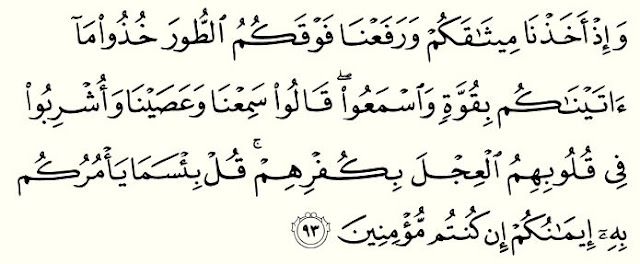 وَإِذْ أَخَذْنَا مِيثَٰقَكُمْ وَرَفَعْنَا فَوْقَكُمُ ٱلطُّورَ خُذُوا۟ مَآ
ءَاتَيْنَٰكُم بِقُوَّةٍ وَٱسْمَعُوا۟ ۖ قَالُوا۟ سَمِعْنَا وَعَصَيْنَا وَأُشْرِبُوا۟
فِى قُلُوبِهِمُ ٱلْعِجْلَ بِكُفْرِهِمْ ۚ قُلْ بِئْسَمَا يَأْمُرُكُم
بِهِۦٓ إِيمَٰنُكُمْ إِن كُنتُم مُّؤْمِنِينَ ٩٣